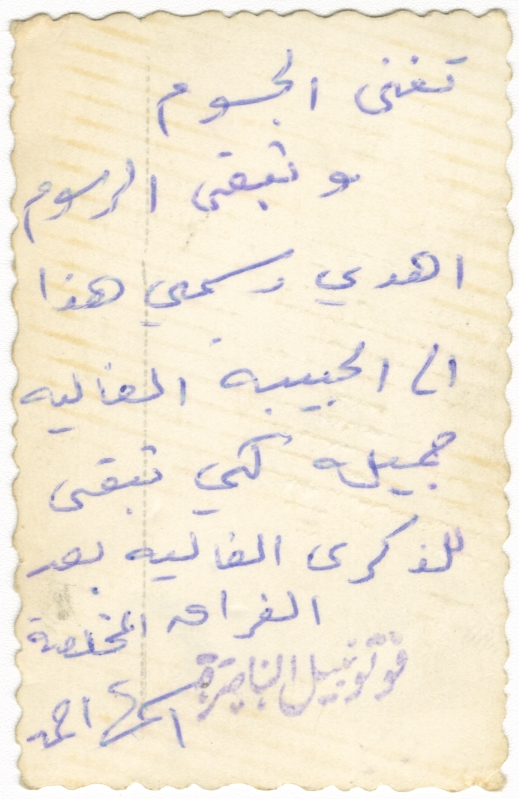 تفنى الجسوم
و تبقى الرسوم
اهدي رسمي هذا
الى الحبيبه الغاليه
جميله لكي تبقى
للذكرى الغاليه بعد
الفراق المخلصة
فوتو نبيل الناصرة
احمد